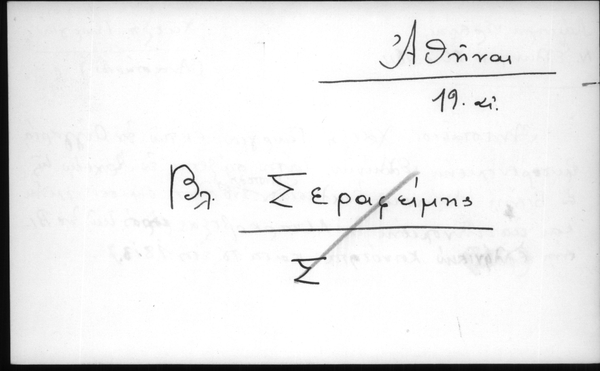 Ἀθῆναι
19. αἰ.
Βλ. Σεραφείμης
Σ